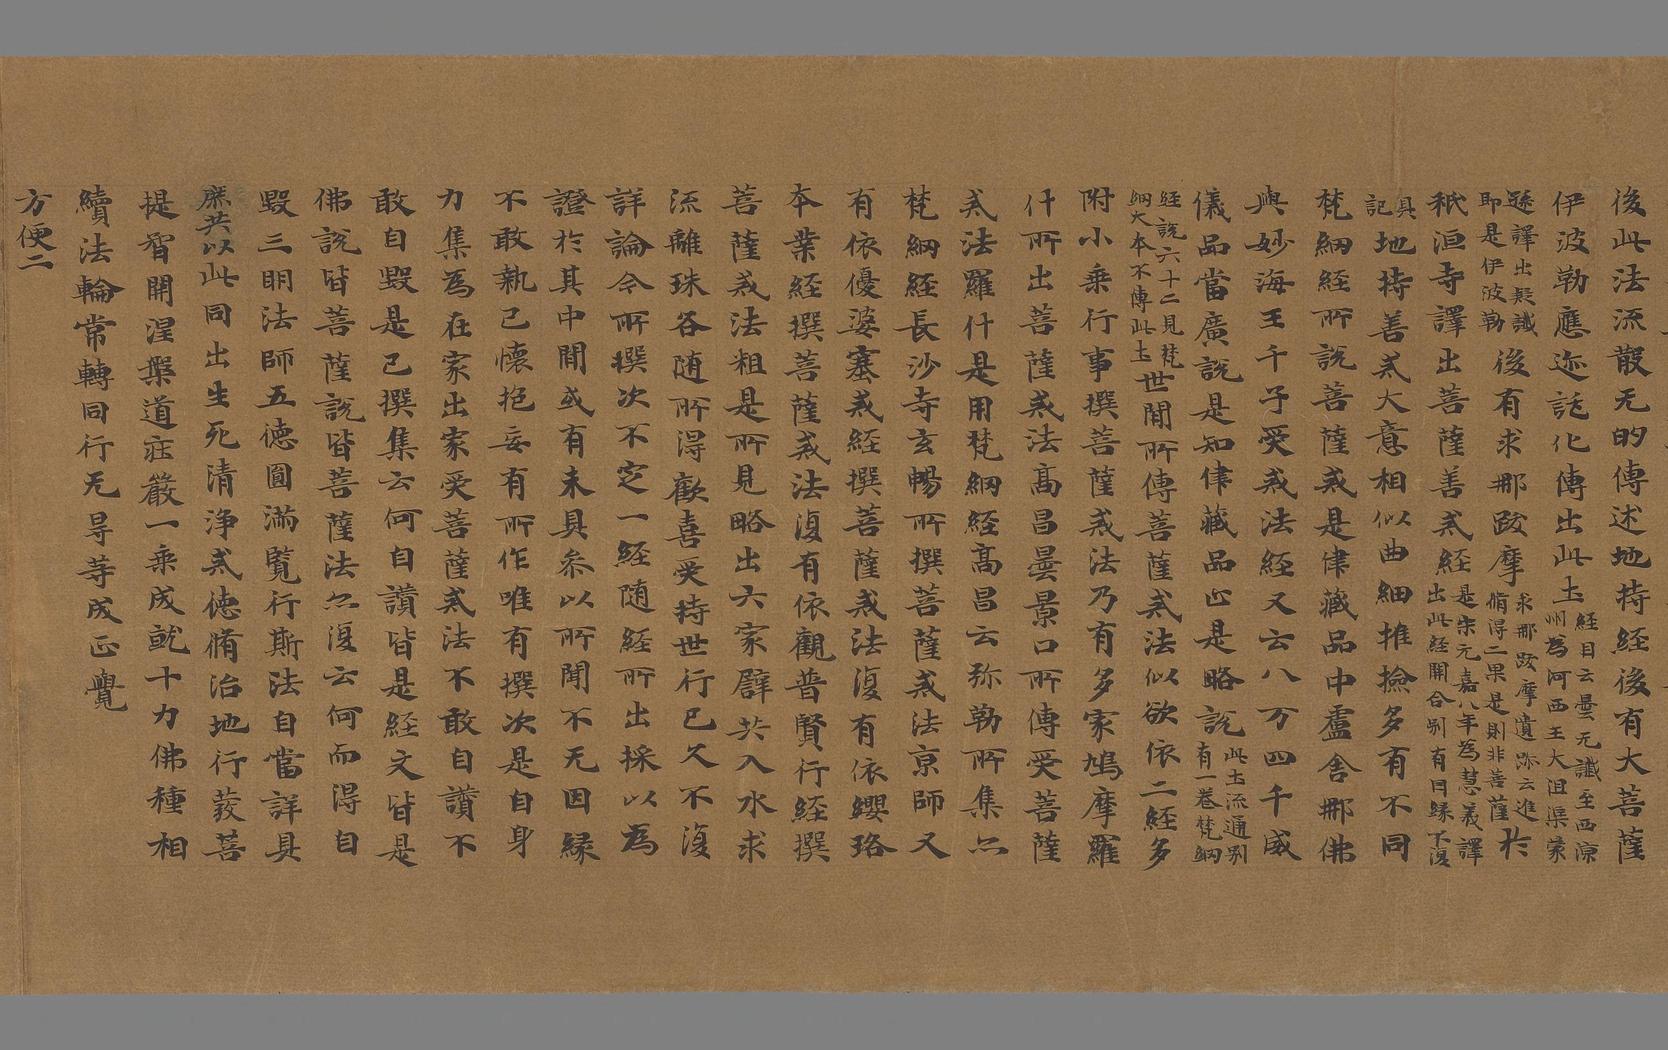 後此法流散无的傳述地持経後有大菩薩
伊波勒應迹託化傳出此土経目云曇无讖至西凉州為河西王大沮渠蒙
遜譯出疑讖即是伊波勒後有求那跋摩求那跋摩遺迹云進脩得二果是則非菩薩於
祇洹寺譯出菩薩善戒経是宋元嘉八年為慧義譯出此経開合別有因縁不復
具記地持善戒大意相似曲細推撿多有不同
梵網経所說菩薩戒是律藏品中盧舍那佛
与妙海王千子受戒法経又云八万四千威
儀品當廣說是知律藏品止是略說此土流通別有一卷梵網
経說六十二見梵網大本不傳此土世間所傳菩薩戒法似欲依二経多
附小乗行事撰菩薩戒法乃有多家鳩摩羅
什所出菩薩戒法高昌曇景口所傳受菩薩
戒法羅什是用梵網経高昌云弥勒所集亦
梵網経長沙寺玄暢所撰菩薩戒法京師又
有依優婆塞戒経撰菩薩戒法復有依纓珞
本業経撰菩薩戒法復有依觀普賢行経撰
菩薩戒法粗是所見略出六家辟共入水求
流離珠各随所得歡喜受持世行已久不復
詳論今所撰次不定一経随経所出採以為
證於其中間或有未具叅以所聞不无因縁
不敢執已懷抱妄有所作唯有撰次是自身
力集為在家出家受菩薩戒法不敢自讃不
敢自毀是已撰集云何自讃皆是経文皆是
佛說皆菩薩說皆菩薩法亦復云何而得自
毀三明法師五徳圓滿覽行斯法自當詳具
庶共以此同出生死清淨戒徳脩治地行菨菩
提智開涅槃道莊嚴一乗成就十力佛種相
續法輪常轉同行无㝵等成正覺
方便二